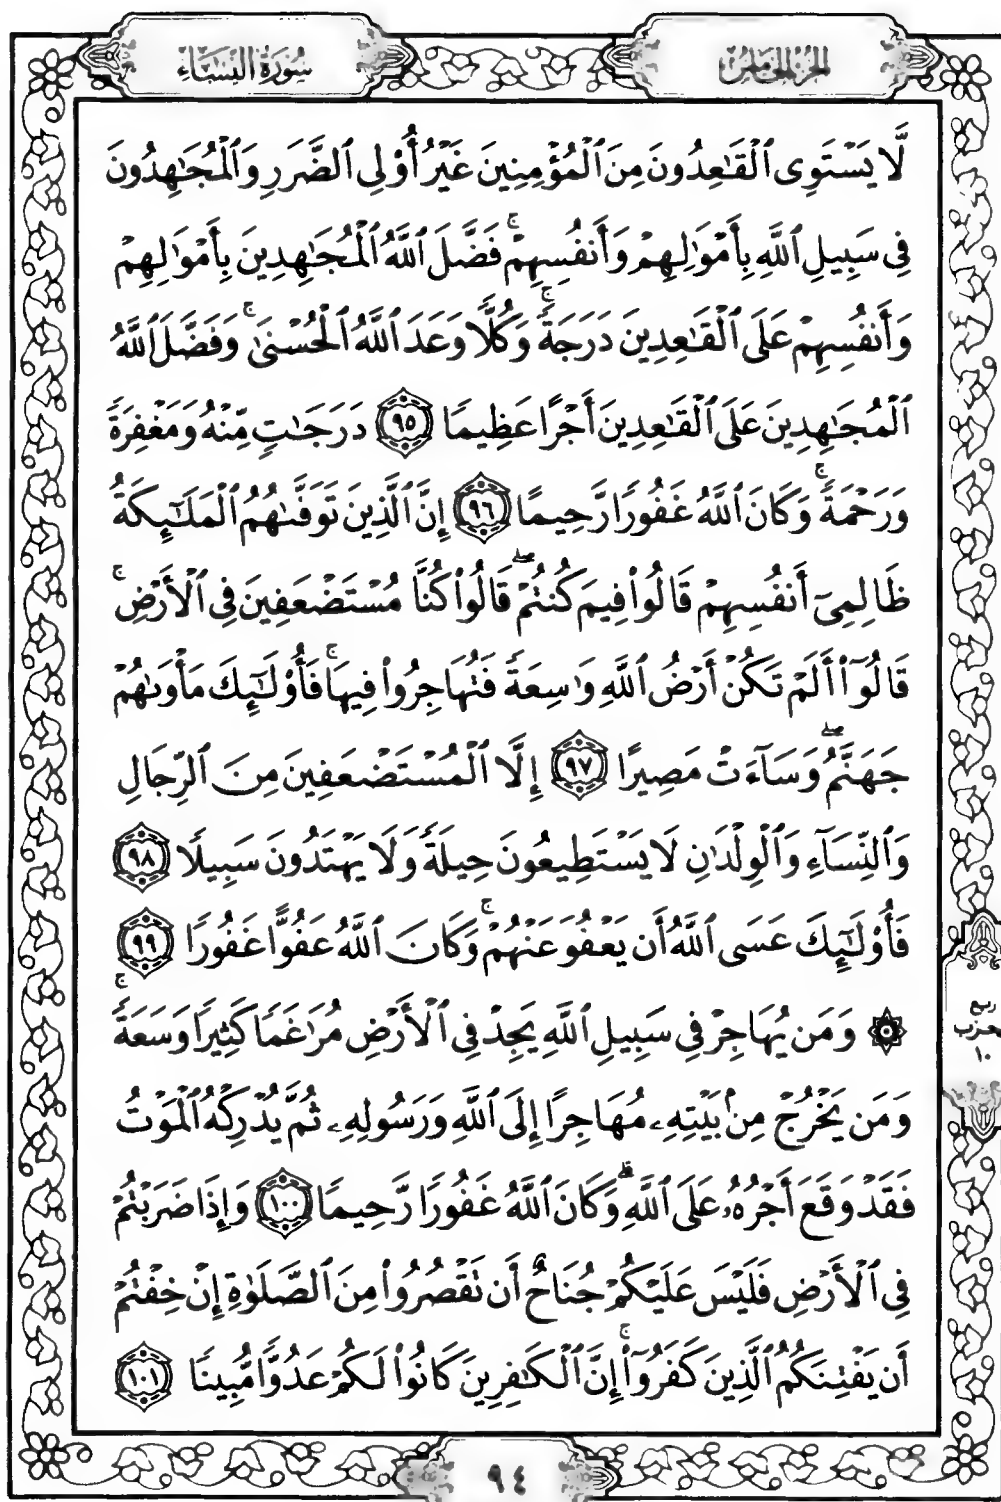 الجزء الخامس
سورة النساء
لَّا يَسْتَوِى ٱلْقَٰعِدُونَ مِنَ ٱلْمُؤْمِنِينَ غَيْرُ أُو۟لِى ٱلضَّرَرِ وَٱلْمُجَٰهِدُونَ
فِى سَبِيلِ ٱللَّهِ بِأَمْوَٰلِهِمْ وَأَنفُسِهِمْ ۚ فَضَّلَ ٱللَّهُ ٱلْمُجَٰهِدِينَ بِأَمْوَٰلِهِمْ
وَأَنفُسِهِمْ عَلَى ٱلْقَٰعِدِينَ دَرَجَةً ۚ وَكُلًّا وَعَدَ ٱللَّهُ ٱلْحُسْنَىٰ ۚ وَفَضَّلَ ٱللَّهُ
ٱلْمُجَٰهِدِينَ عَلَى ٱلْقَٰعِدِينَ أَجْرًا عَظِيمًا ٩٥ دَرَجَٰتٍ مِّنْهُ وَمَغْفِرَةً
وَرَحْمَةً ۚ وَكَانَ ٱللَّهُ غَفُورًا رَّحِيمًا ٩٦ إِنَّ ٱلَّذِينَ تَوَفَّىٰهُمُ ٱلْمَلَٰٓئِكَةُ
ظَالِمِىٓ أَنفُسِهِمْ قَالُوا۟ فِيمَ كُنتُمْ ۖ قَالُوا۟ كُنَّا مُسْتَضْعَفِينَ فِى ٱلْأَرْضِ ۚ
قَالُوٓا۟ أَلَمْ تَكُنْ أَرْضُ ٱللَّهِ وَٰسِعَةً فَتُهَاجِرُوا۟ فِيهَا ۚ فَأُو۟لَٰٓئِكَ مَأْوَىٰهُمْ
جَهَنَّمُ ۖ وَسَآءَتْ مَصِيرًا ٩٧ إِلَّا ٱلْمُسْتَضْعَفِينَ مِنَ ٱلرِّجَالِ
وَٱلنِّسَآءِ وَٱلْوِلْدَٰنِ لَا يَسْتَطِيعُونَ حِيلَةً وَلَا يَهْتَدُونَ سَبِيلًا ٩٨
فَأُو۟لَٰٓئِكَ عَسَى ٱللَّهُ أَن يَعْفُوَ عَنْهُمْ ۚ وَكَانَ ٱللَّهُ عَفُوًّا غَفُورًا ٩٩
۞ وَمَن يُهَاجِرْ فِى سَبِيلِ ٱللَّهِ يَجِدْ فِى ٱلْأَرْضِ مُرَٰغَمًا كَثِيرًا وَسَعَةً ۚ
وَمَن يَخْرُجْ مِنۢ بَيْتِهِۦ مُهَاجِرًا إِلَى ٱللَّهِ وَرَسُولِهِۦ ثُمَّ يُدْرِكْهُ ٱلْمَوْتُ
فَقَدْ وَقَعَ أَجْرُهُۥ عَلَى ٱللَّهِ ۗ وَكَانَ ٱللَّهُ غَفُورًا رَّحِيمًا ١٠٠ وَإِذَا ضَرَبْتُمْ
فِى ٱلْأَرْضِ فَلَيْسَ عَلَيْكُمْ جُنَاحٌ أَن تَقْصُرُوا۟ مِنَ ٱلصَّلَوٰةِ إِنْ خِفْتُمْ
أَن يَفْتِنَكُمُ ٱلَّذِينَ كَفَرُوٓا۟ ۚ إِنَّ ٱلْكَٰفِرِينَ كَانُوا۟ لَكُمْ عَدُوًّا مُّبِينًا ١٠١
ربع
١٠
٩٤